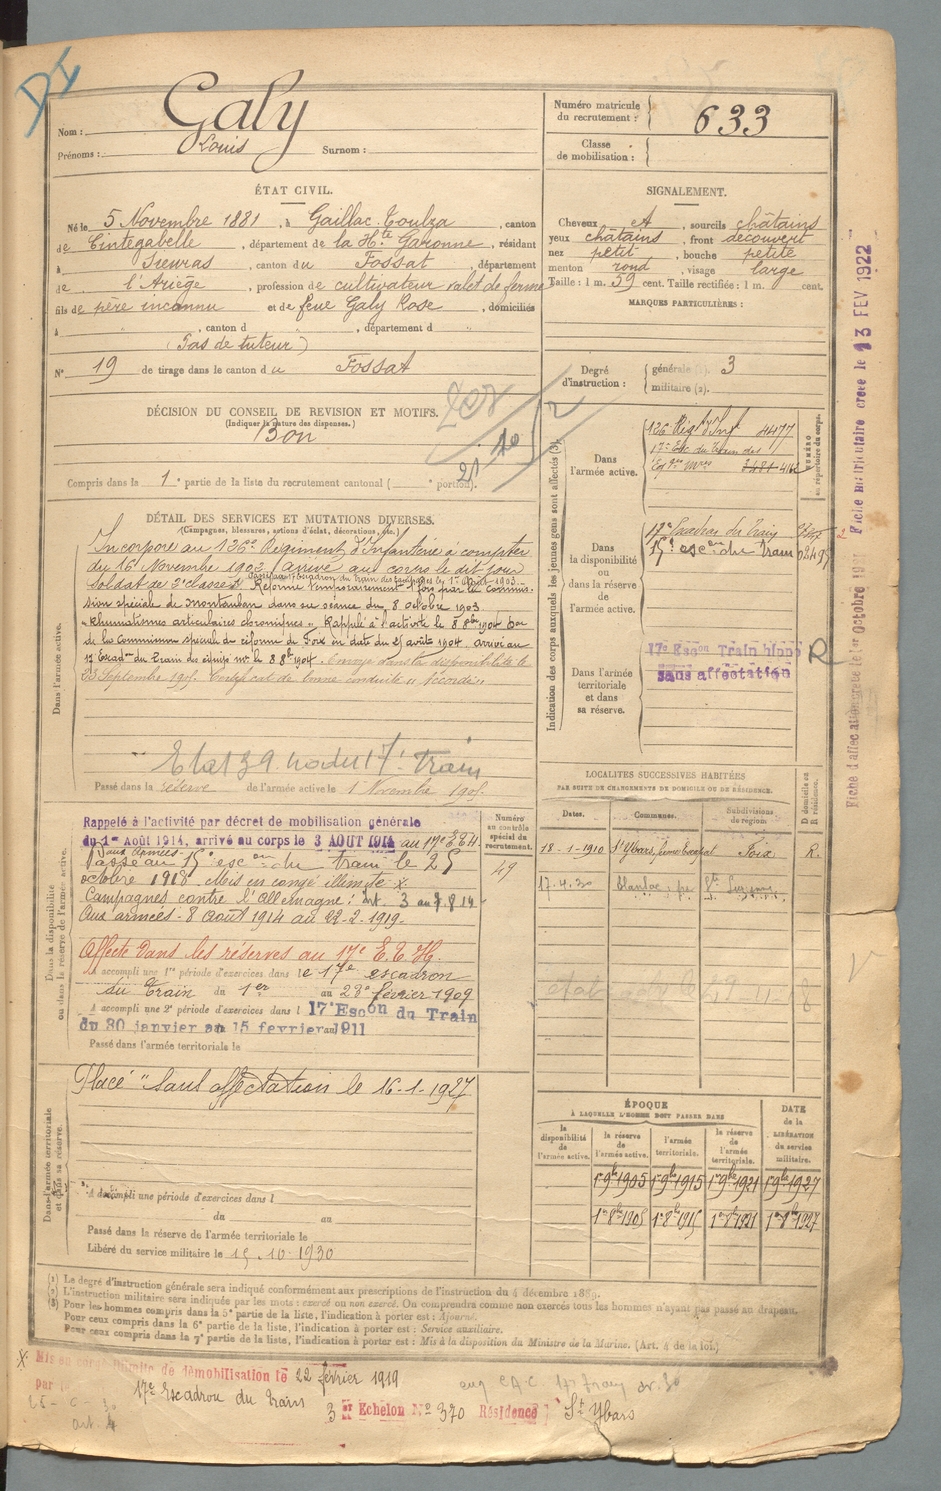 Nom : Galy
Prénoms : Louis Surnom :
Numéro matricule du recrutement : 633
Classe de mobilisation :
ÉTAT CIVIL.
Né le 5 Novembre 1881, à Gaillac-Toulza, canton
de Cintegabelle, département de la Hte Garonne, résidant
à Sieuras, canton du Fossat, département
de l'Ariège, profession de cultivateur valet de ferme
fils de père inconnu et de feue Galy Rose, domiciliés
à , canton d , département d
(Pas de tuteur)
N° 19 de tirage dans le canton du Fossat
SIGNALEMENT.
Cheveux et, sourcils châtains
yeux châtains, front découvert
nez petit, bouche petite
menton rond, visage large
Taille : 1 m. 59 cent. Taille rectifiée : 1 m. cent.
MARQUES PARTICULIÈRES :
Degré d'instruction : générale (1). 3
militaire (2).
DÉCISION DU CONSEIL DE REVISION ET MOTIFS.
(Indiquer la nature des dispenses.)
Bon
Compris dans la 1e partie de la liste du recrutement cantonal ( e portion).
DÉTAIL DES SERVICES ET MUTATIONS DIVERSES.
(Campagnes, blessures, actions d'éclat, décorations, etc.)
Dans l'armée active.
Incorporé au 126e Régiment d'Infanterie à compter
du 16 Novembre 1902 (arrivé au corps le dit jour
soldat de 2e classe. Réformé temporairement 1 fois par la commis-
sion spéciale de Montauban dans sa séance du 8 octobre 1903
"Rhumatismes articulaires chroniques". Rappelé à l'activité le 8 8bre 1904 bon
de la Commission spéciale de réforme de Foix en date du 25 août 1904. arrivé au
17 Escadon du Train des équip. mres le 8 8bre 1904. Envoyé dans la disponibilité le
23 Septembre 1905. Certificat de bonne conduite "Accordé"
Passé dans la réserve de l'armée active le 1 Novembre 1905
Indication des corps auxquels les jeunes gens sont affectés (3).
NUMÉRO au répertoire du corps.
Dans l'armée active.
126 Régt d'Inf 4477
17e Esc du Train des
Dans la disponibilité ou dans la réserve de l'armée active.
17e Escadron du Train
15e escon du Train
Dans l'armée territoriale et dans sa réserve.
17e Escon Train hippo
sans affectation
R
Fiche d'affectation créée le 1er Octobre 19
Fiche matriculaire créée le 13 FEV 1922
LOCALITÉS SUCCESSIVES HABITÉES
PAR SUITE DE CHANGEMENTS DE DOMICILE OU DE RÉSIDENCE.
Dates. Communes. Subdivisions de région. D domicile ou R résidence.
18-1-1910 St Ybars, Foix R.
17.4.30
Dans la disponibilité ou dans la réserve de l'armée active.
Numéro au contrôle spécial du recrutement.
49
Rappelé à l'activité par décret de mobilisation générale
du 1er Août 1914, arrivé au corps le 3 AOUT 1914 au 17e E.T.H.
Passé au 15e escon du train le 25
octobre 1918. Mis en congé illimité x.
Campagnes contre l'Allemagne : Int. 3 au 7.8.14
Aux armées - 8 Août 1914 au 22-2-1919.
Affecté dans les réserves au 17e E.T.H.
A accompli une 1re période d'exercices dans le 17e escadron
du Train du 1er au 23 février 1909
A accompli une 2e période d'exercices dans l 17e Escon du Train
du 30 janvier au 15 fevrier 1911
Passé dans l'armée territoriale le
Dans l'armée territoriale et dans sa réserve.
Placé "sans affectation le 16-1-1927
A accompli une période d'exercices dans l
du au
Passé dans la réserve de l'armée territoriale le
Libéré du service militaire le 15.10.1930
ÉPOQUE
À LAQUELLE L'HOMME DOIT PASSER DANS
DATE de la LIBÉRATION du service militaire.
la disponibilité de l'armée active. la réserve de l'armée active. l'armée territoriale. la réserve de l'armée territoriale.
1er 9bre 1905 1er 9bre 1915 1er 9bre 1921 1er 9bre 1927
1er 8bre 1905 1er 8bre 1915 1er 8bre 1921 1er 8bre 1927
(1) Le degré d'instruction générale sera indiqué conformément aux prescriptions de l'instruction du 4 décembre 1889.
(2) L'instruction militaire sera indiquée par les mots : exercé ou non exercé. On comprendra comme non exercés tous les hommes n'ayant pas passé au drapeau.
(3) Pour les hommes compris dans la 5e partie de la liste, l'indication à porter est : Ajourné.
Pour ceux compris dans la 6e partie de la liste, l'indication à porter est : Service auxiliaire.
Pour ceux compris dans la 7e partie de la liste, l'indication à porter est : Mis à la disposition du Ministre de la Marine. (Art. 4 de la loi.)
x Mis en congé illimité de démobilisation le 22 février 1919
par 17e Escadron du Train
3 Echelon N° 370 Résidence St Ybars